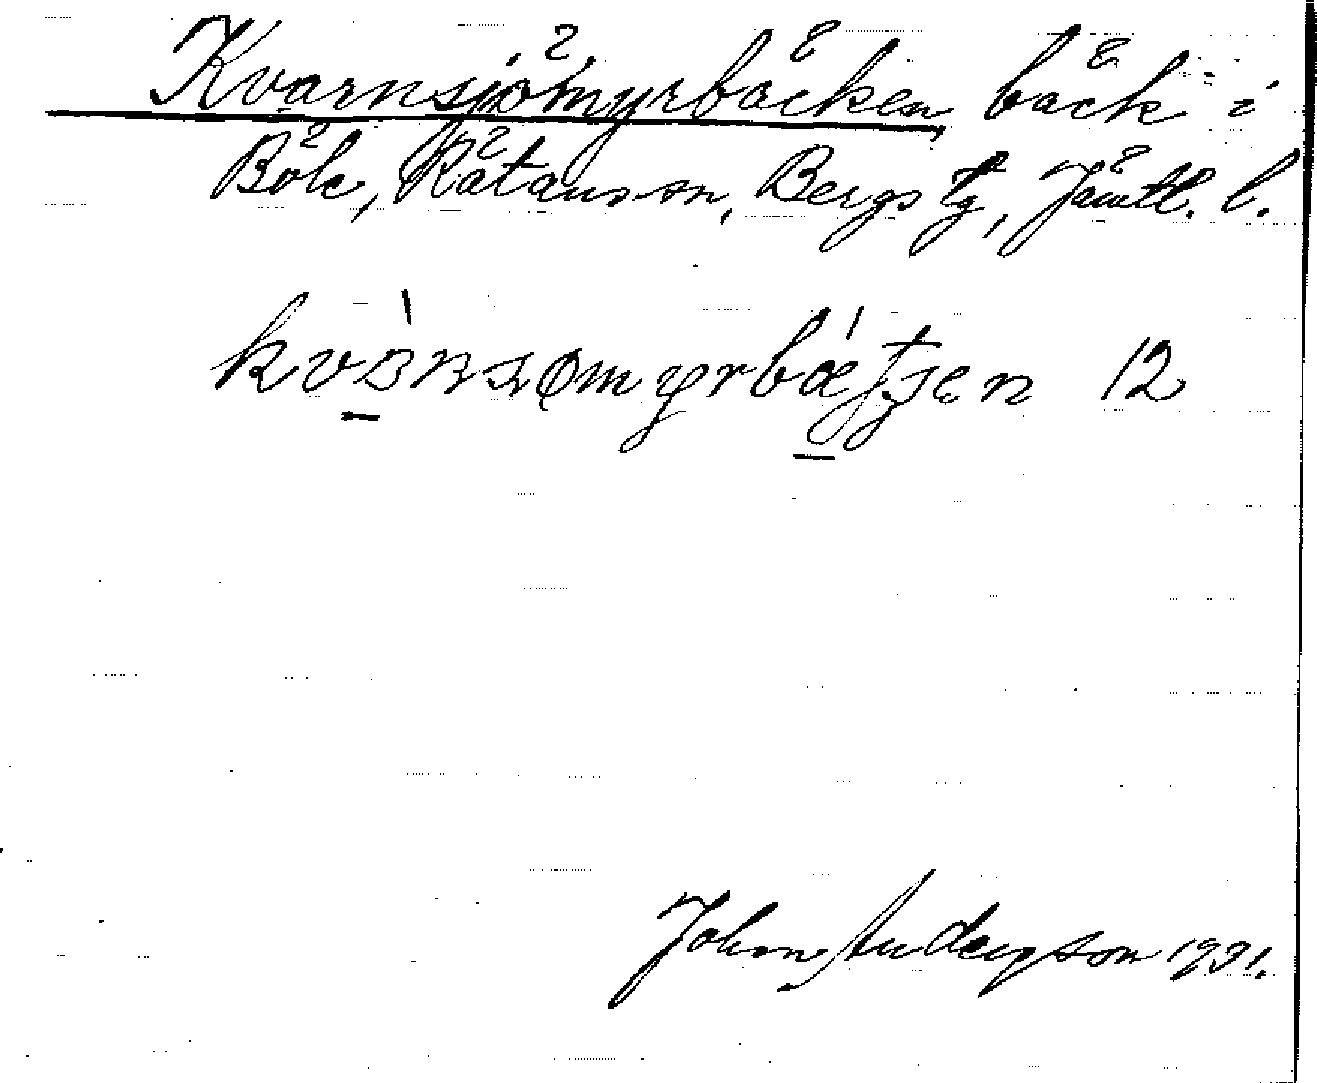 Kvarnsjömyrbäcken, bäck i
Böle, Rätans sn, Bergs tg, Jämtl. l.
kvànsømyrbǽtjen 12
John Andersson 1931.